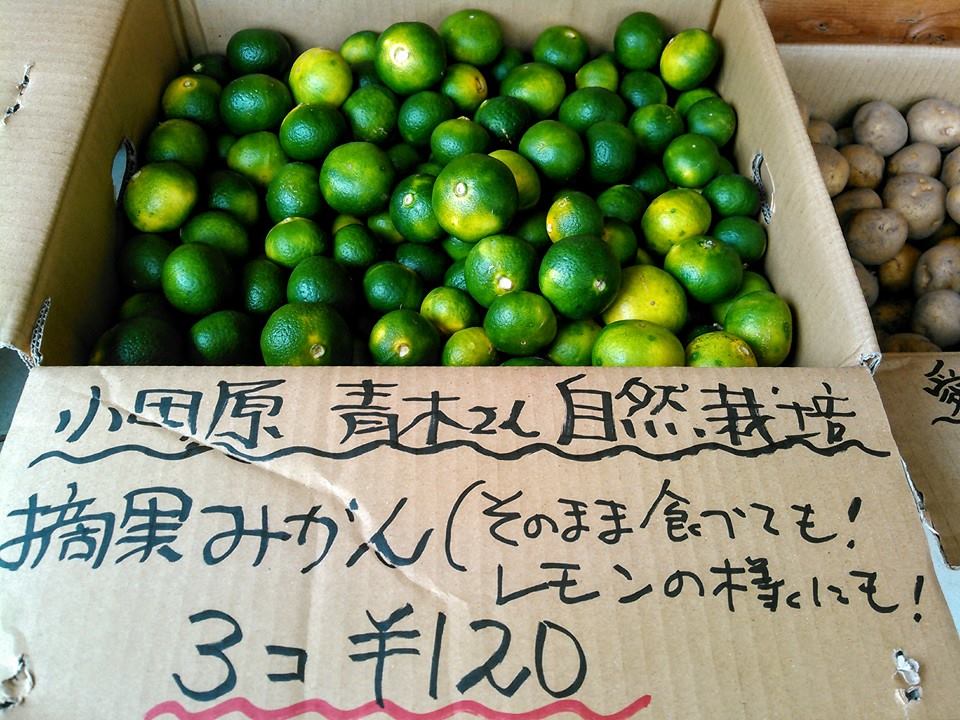 小田原 青木さん 自然栽培
摘果みかん (そのまま食べても!
レモンの様にも!
3コ ¥120